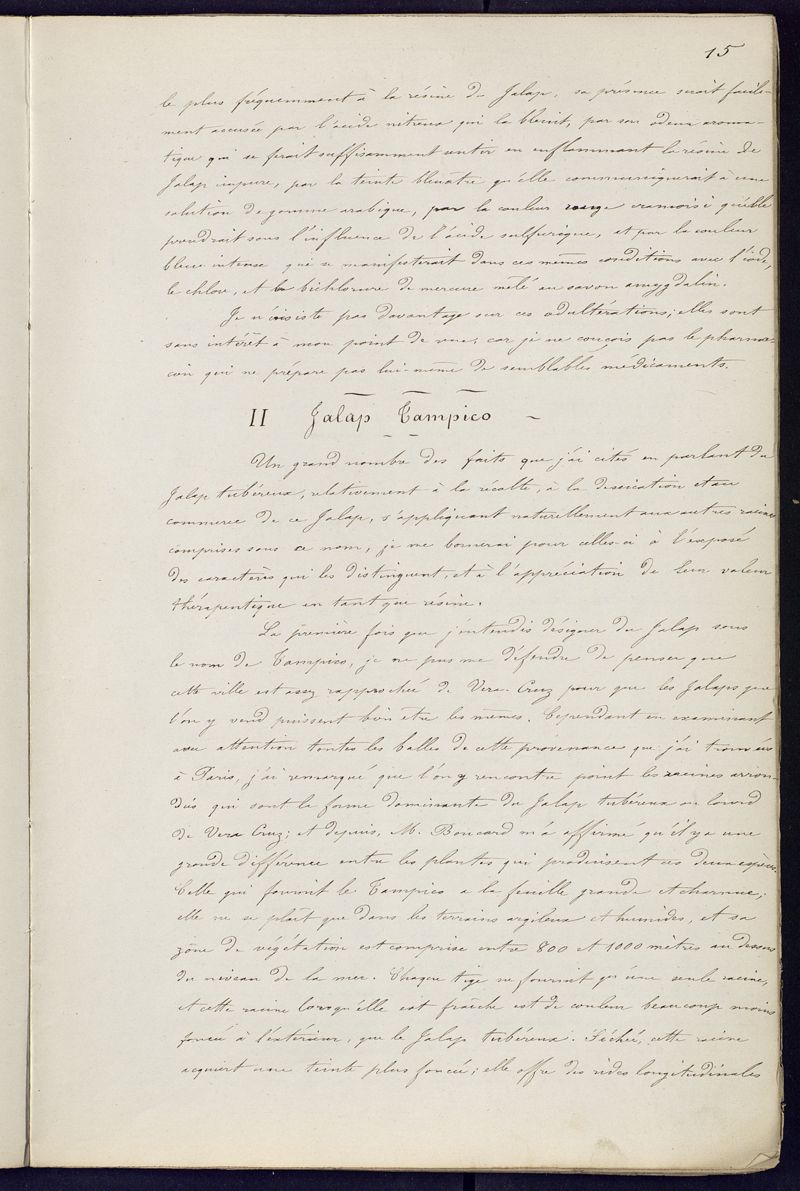 15
le plus fréquemment à la résine de Jalap, sa présence serait facile-
ment accusée par l'acide nitreux qui la bleuit, par son odeur aroma-
tique qui se ferait suffisamment sentir en enflammant la résine de
Jalap impure, par la teinte bleuâtre qu'elle communiquerait à une
solution de gomme arabique, par la couleur rouge cramoisi qu'elle
prendrait sous l'influence de l'acide sulfurique, et par la couleur
bleue intense qui se manifesterait dans ces mêmes conditions avec l'iode,
le chlore, et le bichlorure de mercure mêlé au savon amygdalin.
Je n'insiste pas davantage sur ces adultérations; elles sont
sans intérêt à mon point de vue, car je ne conçois pas le pharma-
cien qui ne prépare pas lui-même de semblables médicaments.
II Jalap Tampico
Un grand nombre des faits que j'ai cités en parlant du
Jalap tubéreux, relativement à la récolte, à la dessication et au
commerce de ce Jalap, s'appliquant naturellement aux autres racines
comprises sous ce nom, je me bornerai pour celles-ci à l'exposé
des caractères qui les distinguent, et à l'appréciation de leur valeur
thérapeutique en tant que résine.
La première fois que j'entendis désigner du Jalap sous
le nom de Tampico, je ne pus me défendre de penser que
cette ville est assez rapprochée de Vera-Cruz pour que les Jalaps que
l'on y vend puissent bien être les mêmes. Cependant en examinant
avec attention toutes les balles de cette provenance que j'ai trouvées
à Paris, j'ai remarqué que l'on y rencontre point les racines arron-
dies qui sont la forme dominante du Jalap tubéreux ou lourd
de Vera Cruz; et depuis, M. Boucard m'a affirmé qu'il y a une
grande différence entre les plantes qui produisent ces deux espèces.
Celle qui fournit le Tampico a la feuille grande et charnue;
elle ne se plaît que dans les terrains argileux et humides, et sa
zône de végétation est comprise entre 800 et 1000 mètres au dessus
du niveau de la mer. Chaque tige ne fournit qu'une seule racine,
et cette racine lorsqu'elle est fraîche est de couleur beaucoup moins
foncée à l'extérieur, que le Jalap tubéreux. Séchée, cette racine
acquiert une teinte plus foncée; elle offre des rides longitudinales